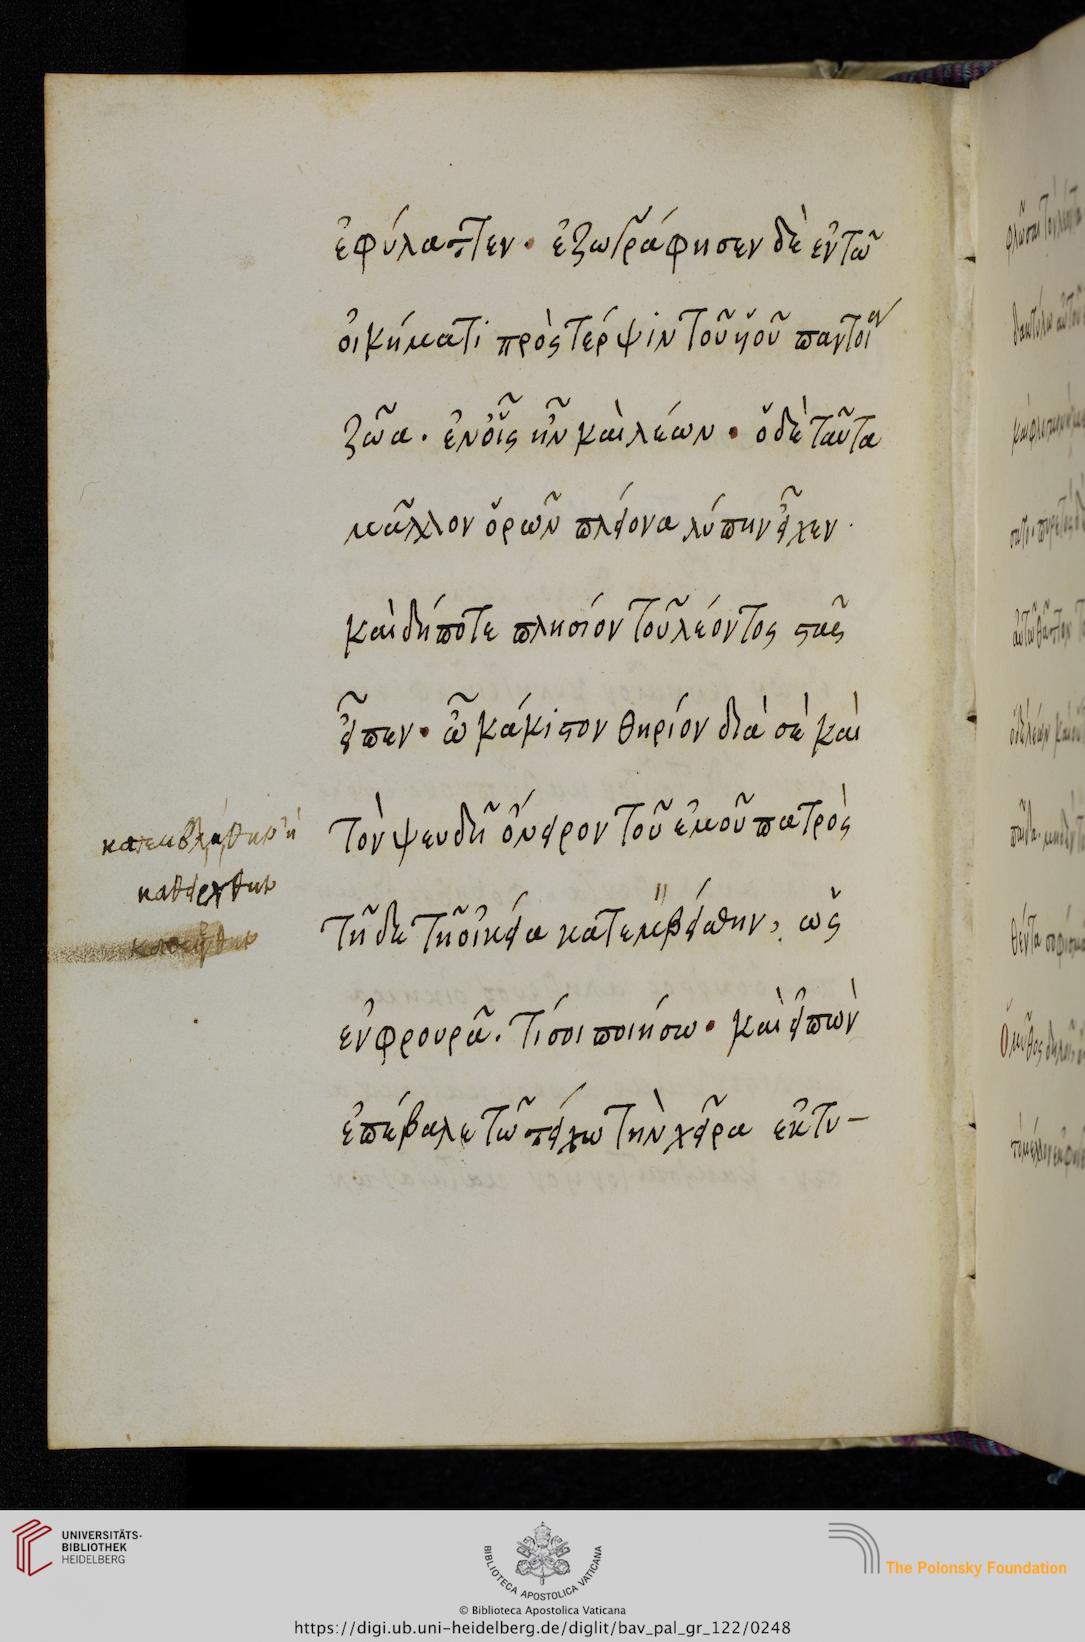 ἐφύλαττεν. ἐζωγράφησεν δὲ ἐν τῶ
οἰκήματι πρὸς τέρψιν τοῦ υἱοῦ παντοῖα
ζῶα. ἐν οἷς ἦν καὶ λέων. ὁ δὲ ταῦτα
μᾶλλον ὁρῶν πλείονα λύπην εἶχεν.
καὶ δήποτε πλησίον τοῦ λέοντος στὰς
εἶπεν. ὦ κάκιστον θηρίον διὰ σὲ καὶ
τὸν ψευδῆ ὄνειρον τοῦ ἐμοῦ πατρὸς
τῆδε τῆ οἰκεία κατεμβείαθην, ὡς
ἐν φρουρᾶ. τί σοι ποιήσω. καὶ εἰπὼν
ἐπέβαλε τῶ τείχω τὴν χεῖρα ἐκτυ-
καθείρχθην
UNIVERSITÄTS-
BIBLIOTHEK
HEIDELBERG
BIBLIOTECA APOSTOLICA VATICANA
The Polonsky Foundation
© Biblioteca Apostolica Vaticana
https://digi.ub.uni-heidelberg.de/diglit/bav_pal_gr_122/0248